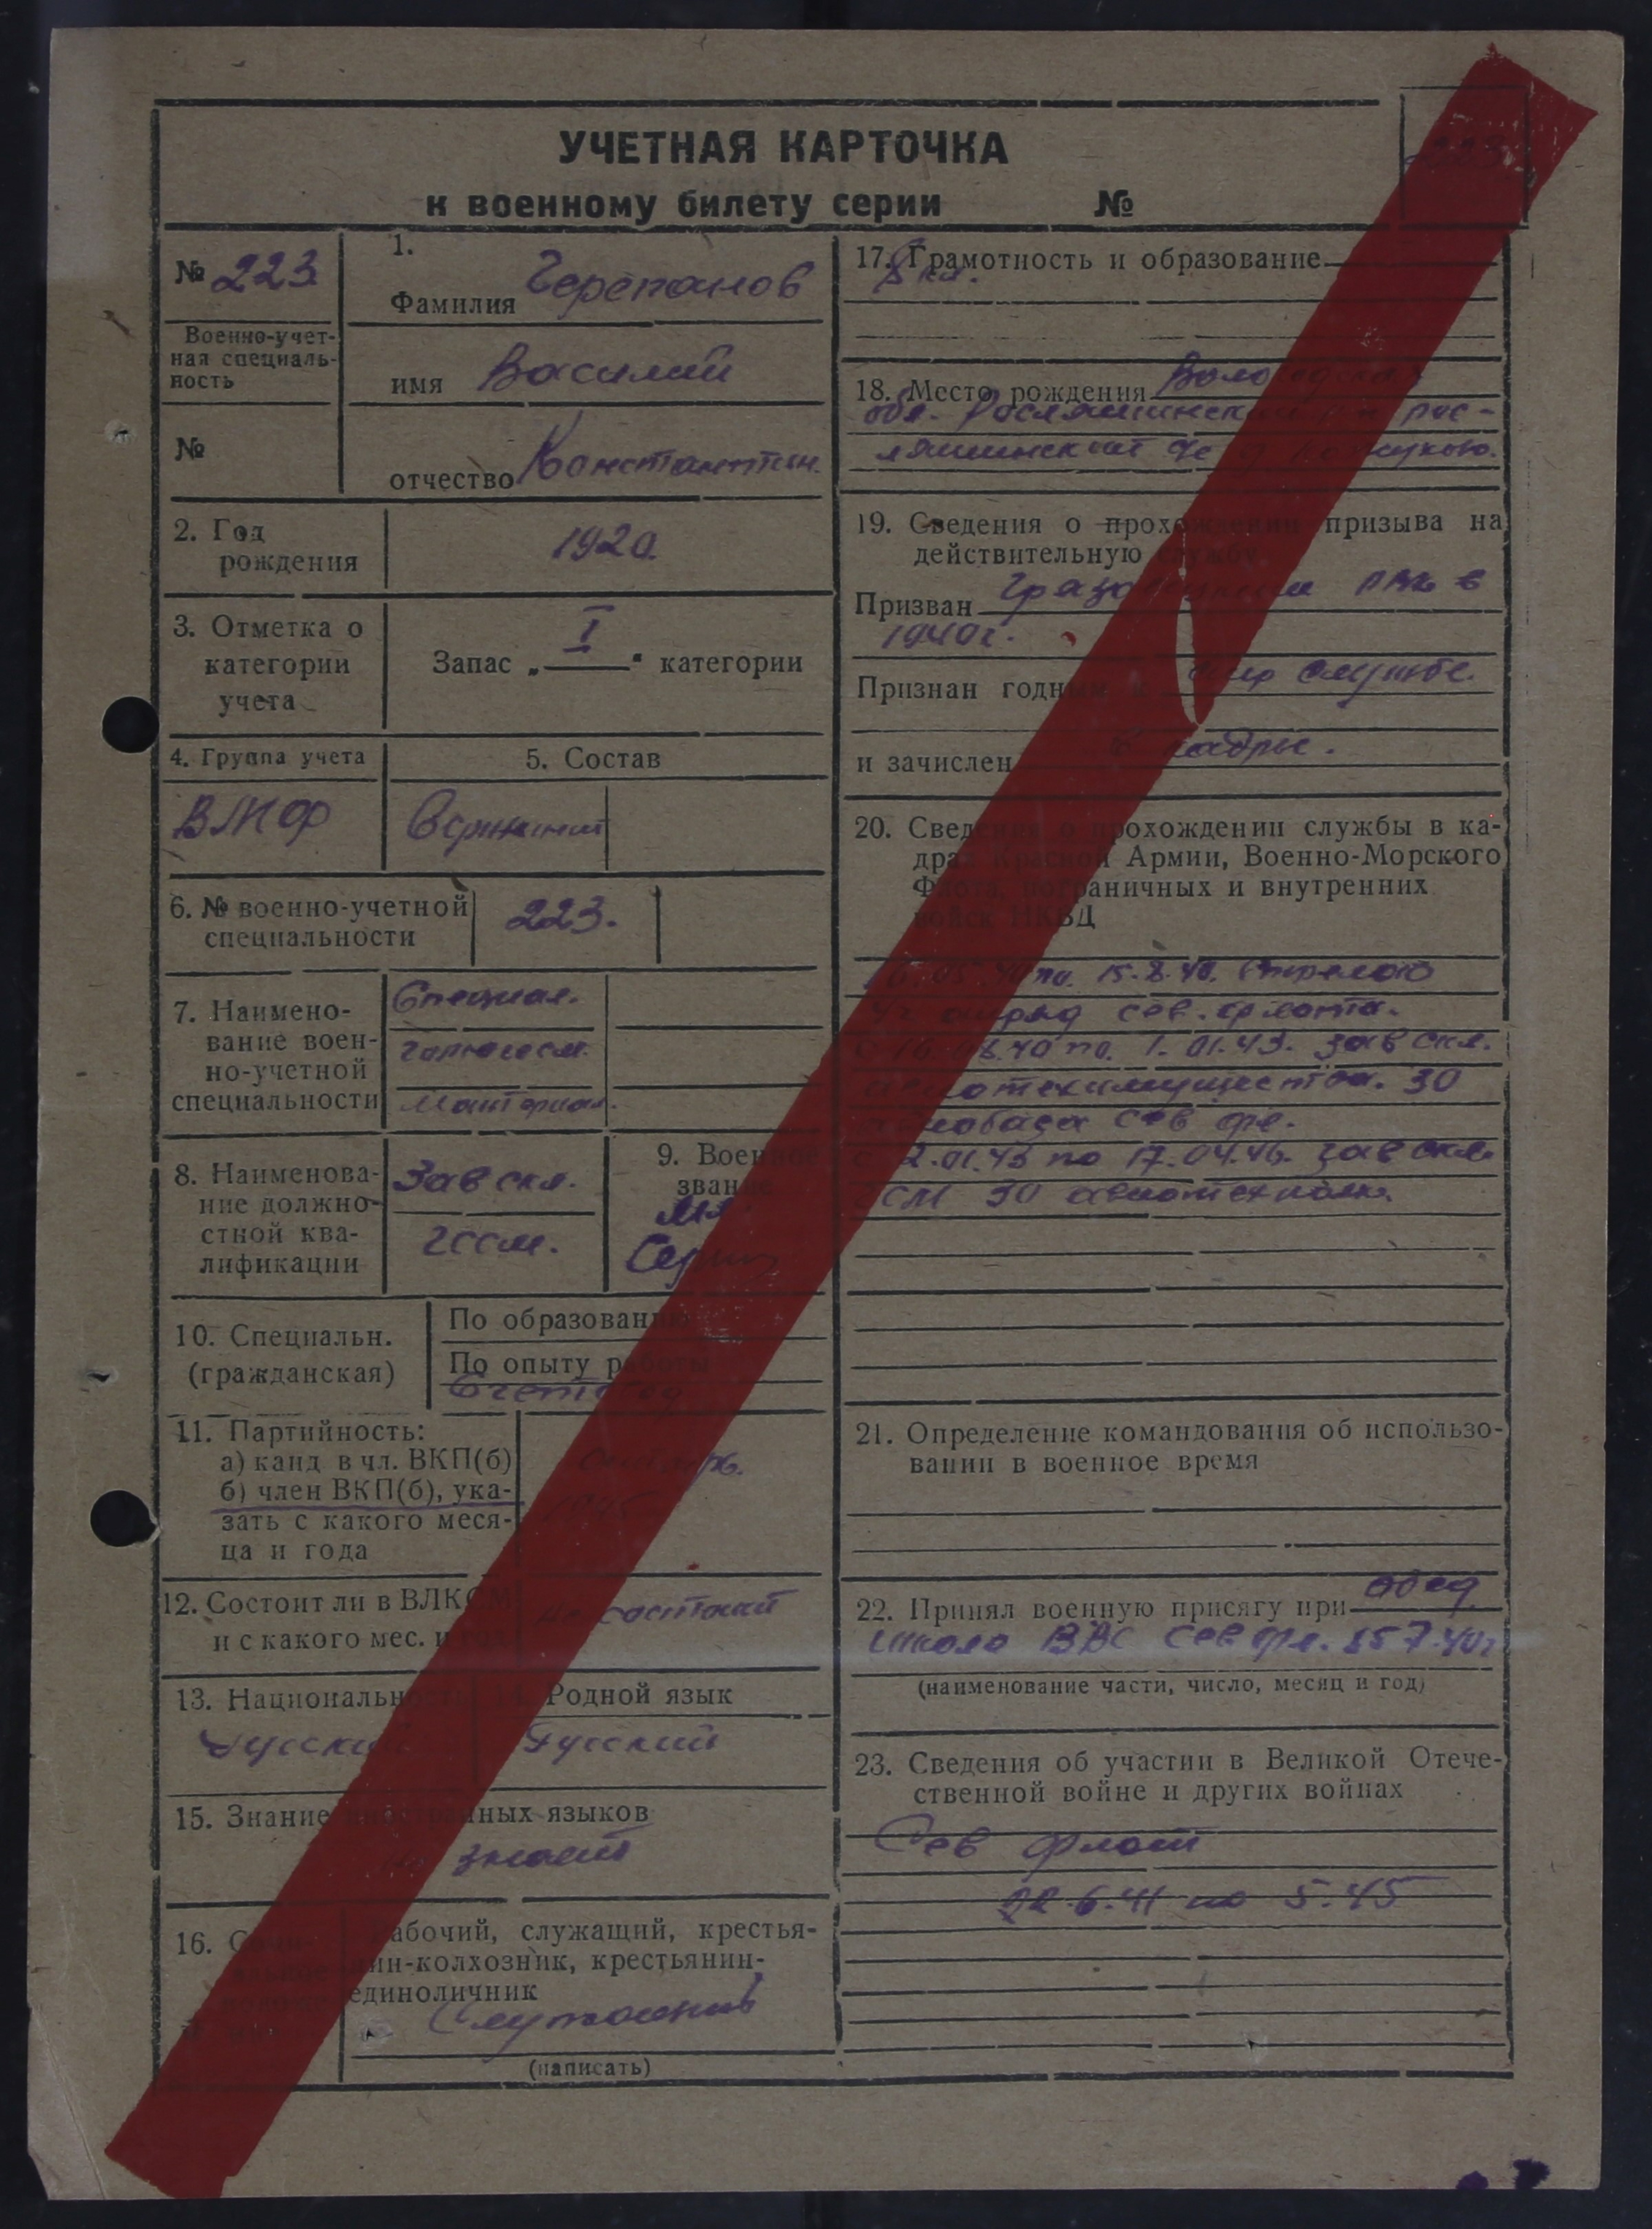 УЧЕТНАЯ КАРТОЧКА
к военному билету серии №
223
№ 223
Военно-учет-
ная специаль-
ность
№
1.
Фамилия Черепанов
имя Василий
отчество Константин.
2. Год
рождения
1920.
3. Отметка о
категории
учета
Запас „ I " категории
4. Группа учета
ВМФ
5. Состав
6. № военно-учетной
специальности
223.
7. Наимено-
вание воен-
но-учетной
специальности
Специал.
8. Наименова-
ние должно-
стной ква-
лификации
Зав скл.
9. Военное
звание
Мл.
10. Специальн.
(гражданская)
По образованию
По опыту работы
Счетовод
11. Партийность:
а) канд в чл. ВКП(б)
б) член ВКП(б), ука-
зать с какого меся-
ца и года
1945
12. Состоит ли в ВЛКСМ
и с какого мес. и год.
не состоит
13. Национальность
Русский
14. Родной язык
Русский
15. Знание иностранных языков
не знает
16. Соци-
альное
положе-
ние
Рабочий, служащий, крестья-
нин-колхозник, крестьянин-
единоличник
(написать)
17. Грамотность и образование
8 кл.
18. Место рождения Вологодская
обл. Рослятинский
19. Сведения о прохождении призыва на
действительную службу
Призван РВК в
1940г.
Признан годным к службе.
и зачислен в кадры.
20. Сведения о прохождении службы в ка-
драх Красной Армии, Военно-Морского
Флота, пограничных и внутренних
войск НКВД
по 15.8.40.
сев. флота.
с 16.08.40 по 1.01.43. зав скл.
авиотехимущества. 30
авиобаза Сев фл.
с 2.01.43 по 17.04.46. зав скл.
ГСМ 30
21. Определение командования об использо-
вании в военное время
22. Принял военную присягу при
школа ВВС Сев фл. 7.40г
(наименование части, число, месяц и год)
23. Сведения об участии в Великой Отече-
ственной войне и других войнах
Сев флот
22.6.41 по 5.45